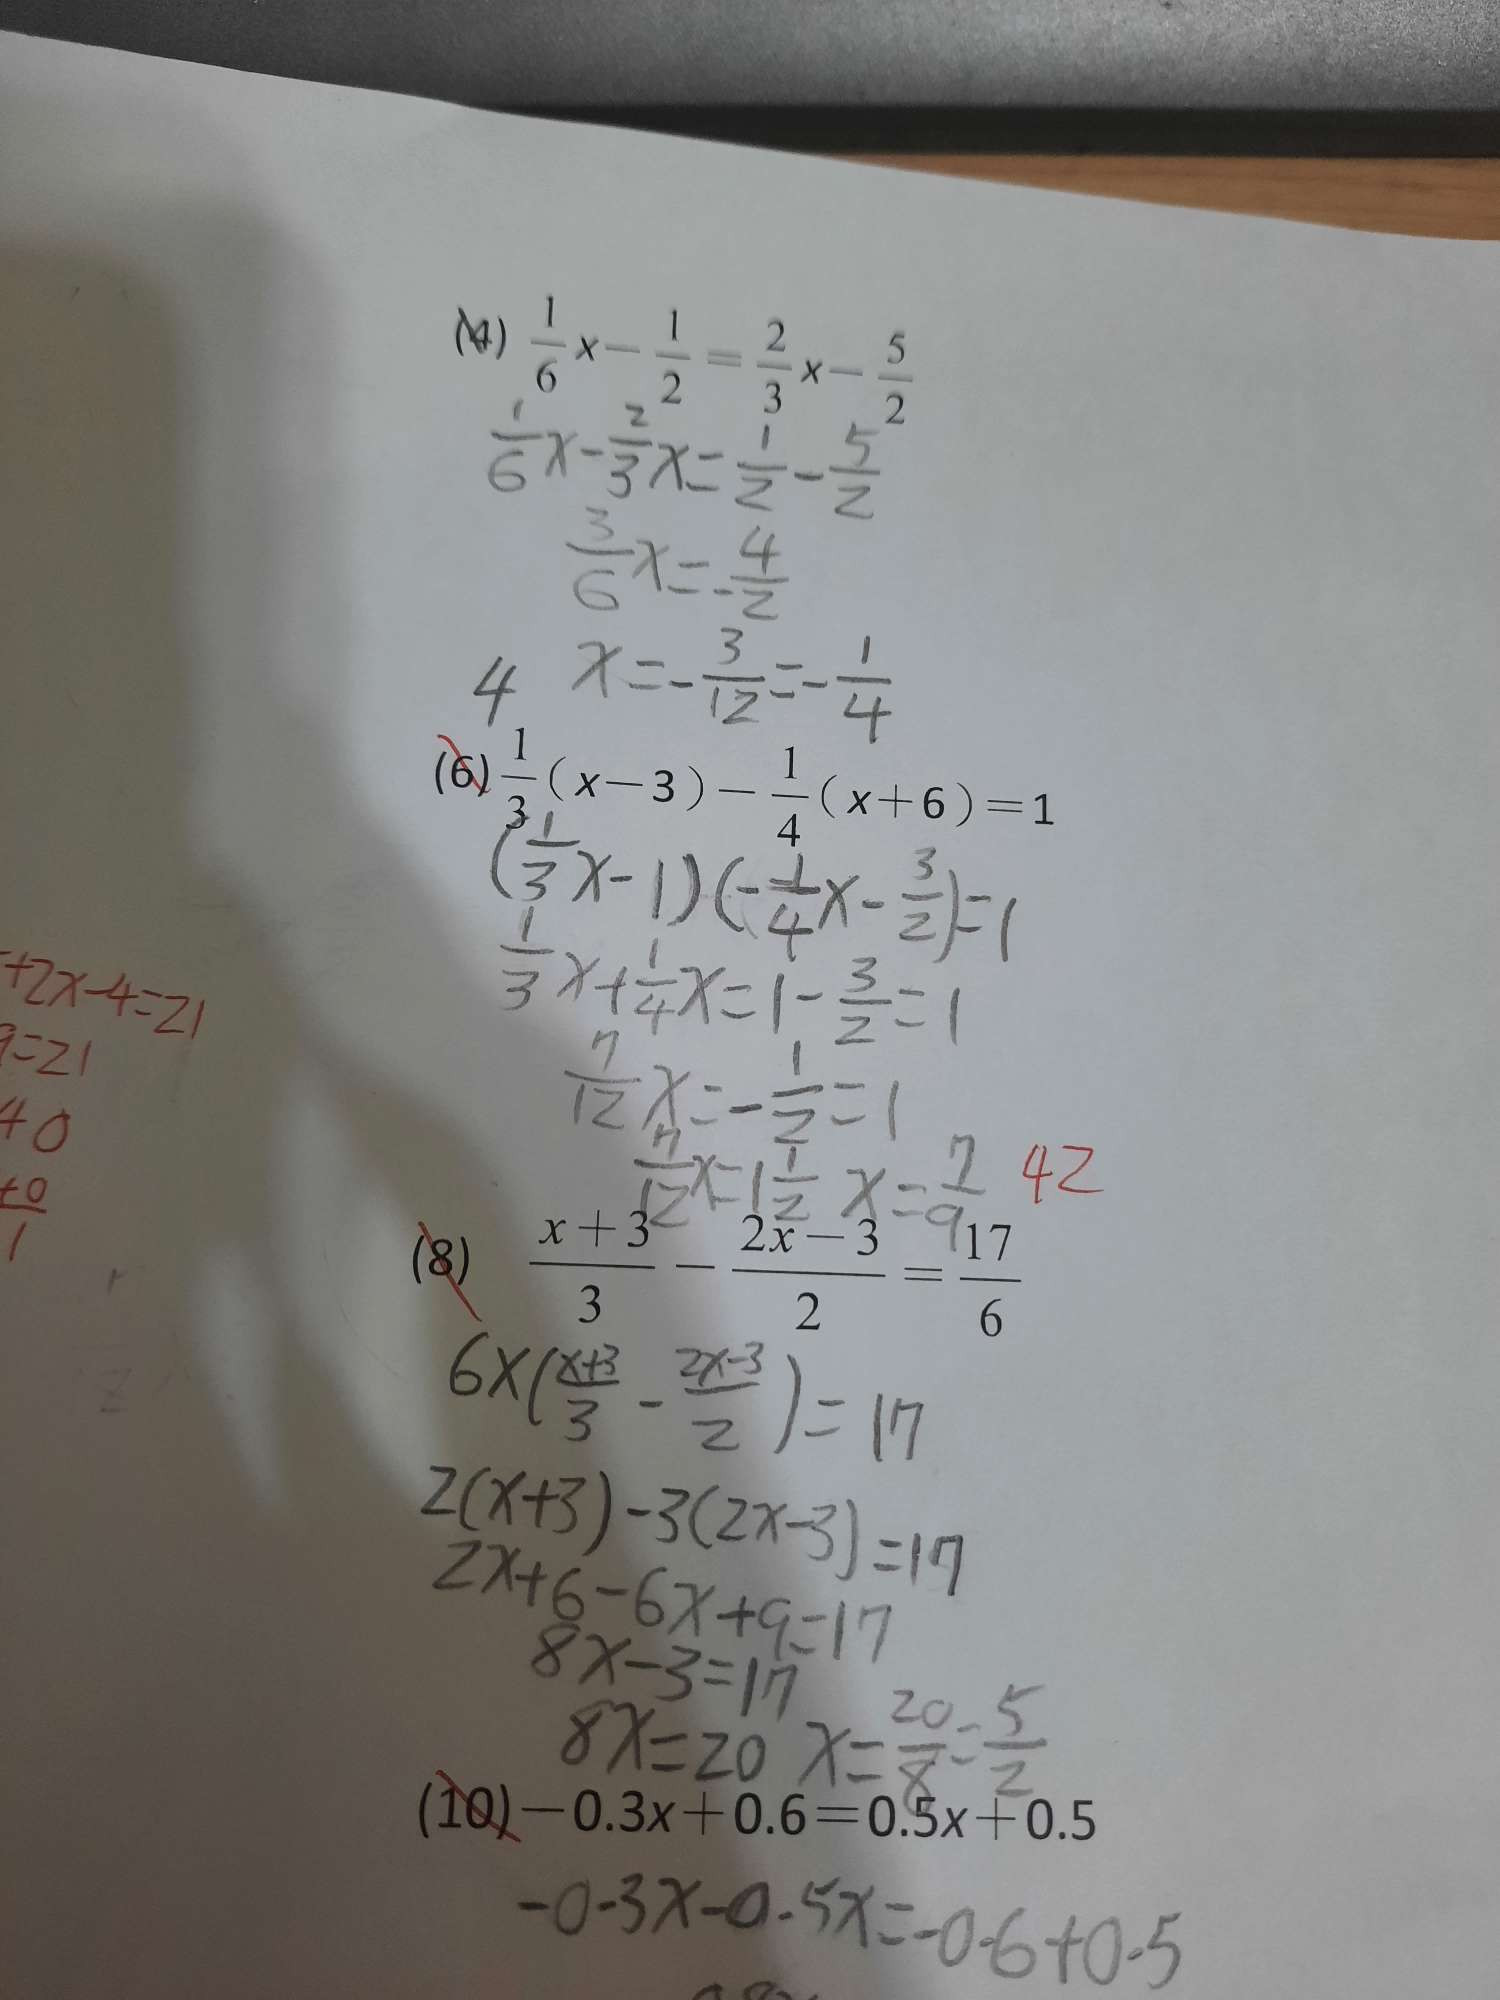 (4) 1/6 x − 1/2 = 2/3 x − 5/2
1/6 x - 2/3 x = 1/2 - 5/2
3/6 x = - 4/2
4 x = - 3/12 = - 1/4
(6) 1/3 (x−3) − 1/4 (x+6) = 1
(1/3 x - 1)(- 1/4 x - 3/2) = 1
1/3 x + 1/4 x = 1 - 3/2 = 1
7/12 x = - 1/2 = 1
7/12 x = 1 1/2 x = 7/9 42
(8) x+3/3 − 2x−3/2 = 17/6
6x(x+3/3 - 2x-3/2) = 17
2(x+3) - 3(2x-3) = 17
2x+6-6x+9=17
8x-3=17
8x=20 x = 20/8 = 5/2
(10) −0.3x+0.6=0.5x+0.5
-0.3x-0.5x=-0.6+0.5
+2x-4=21
9=21
40
1